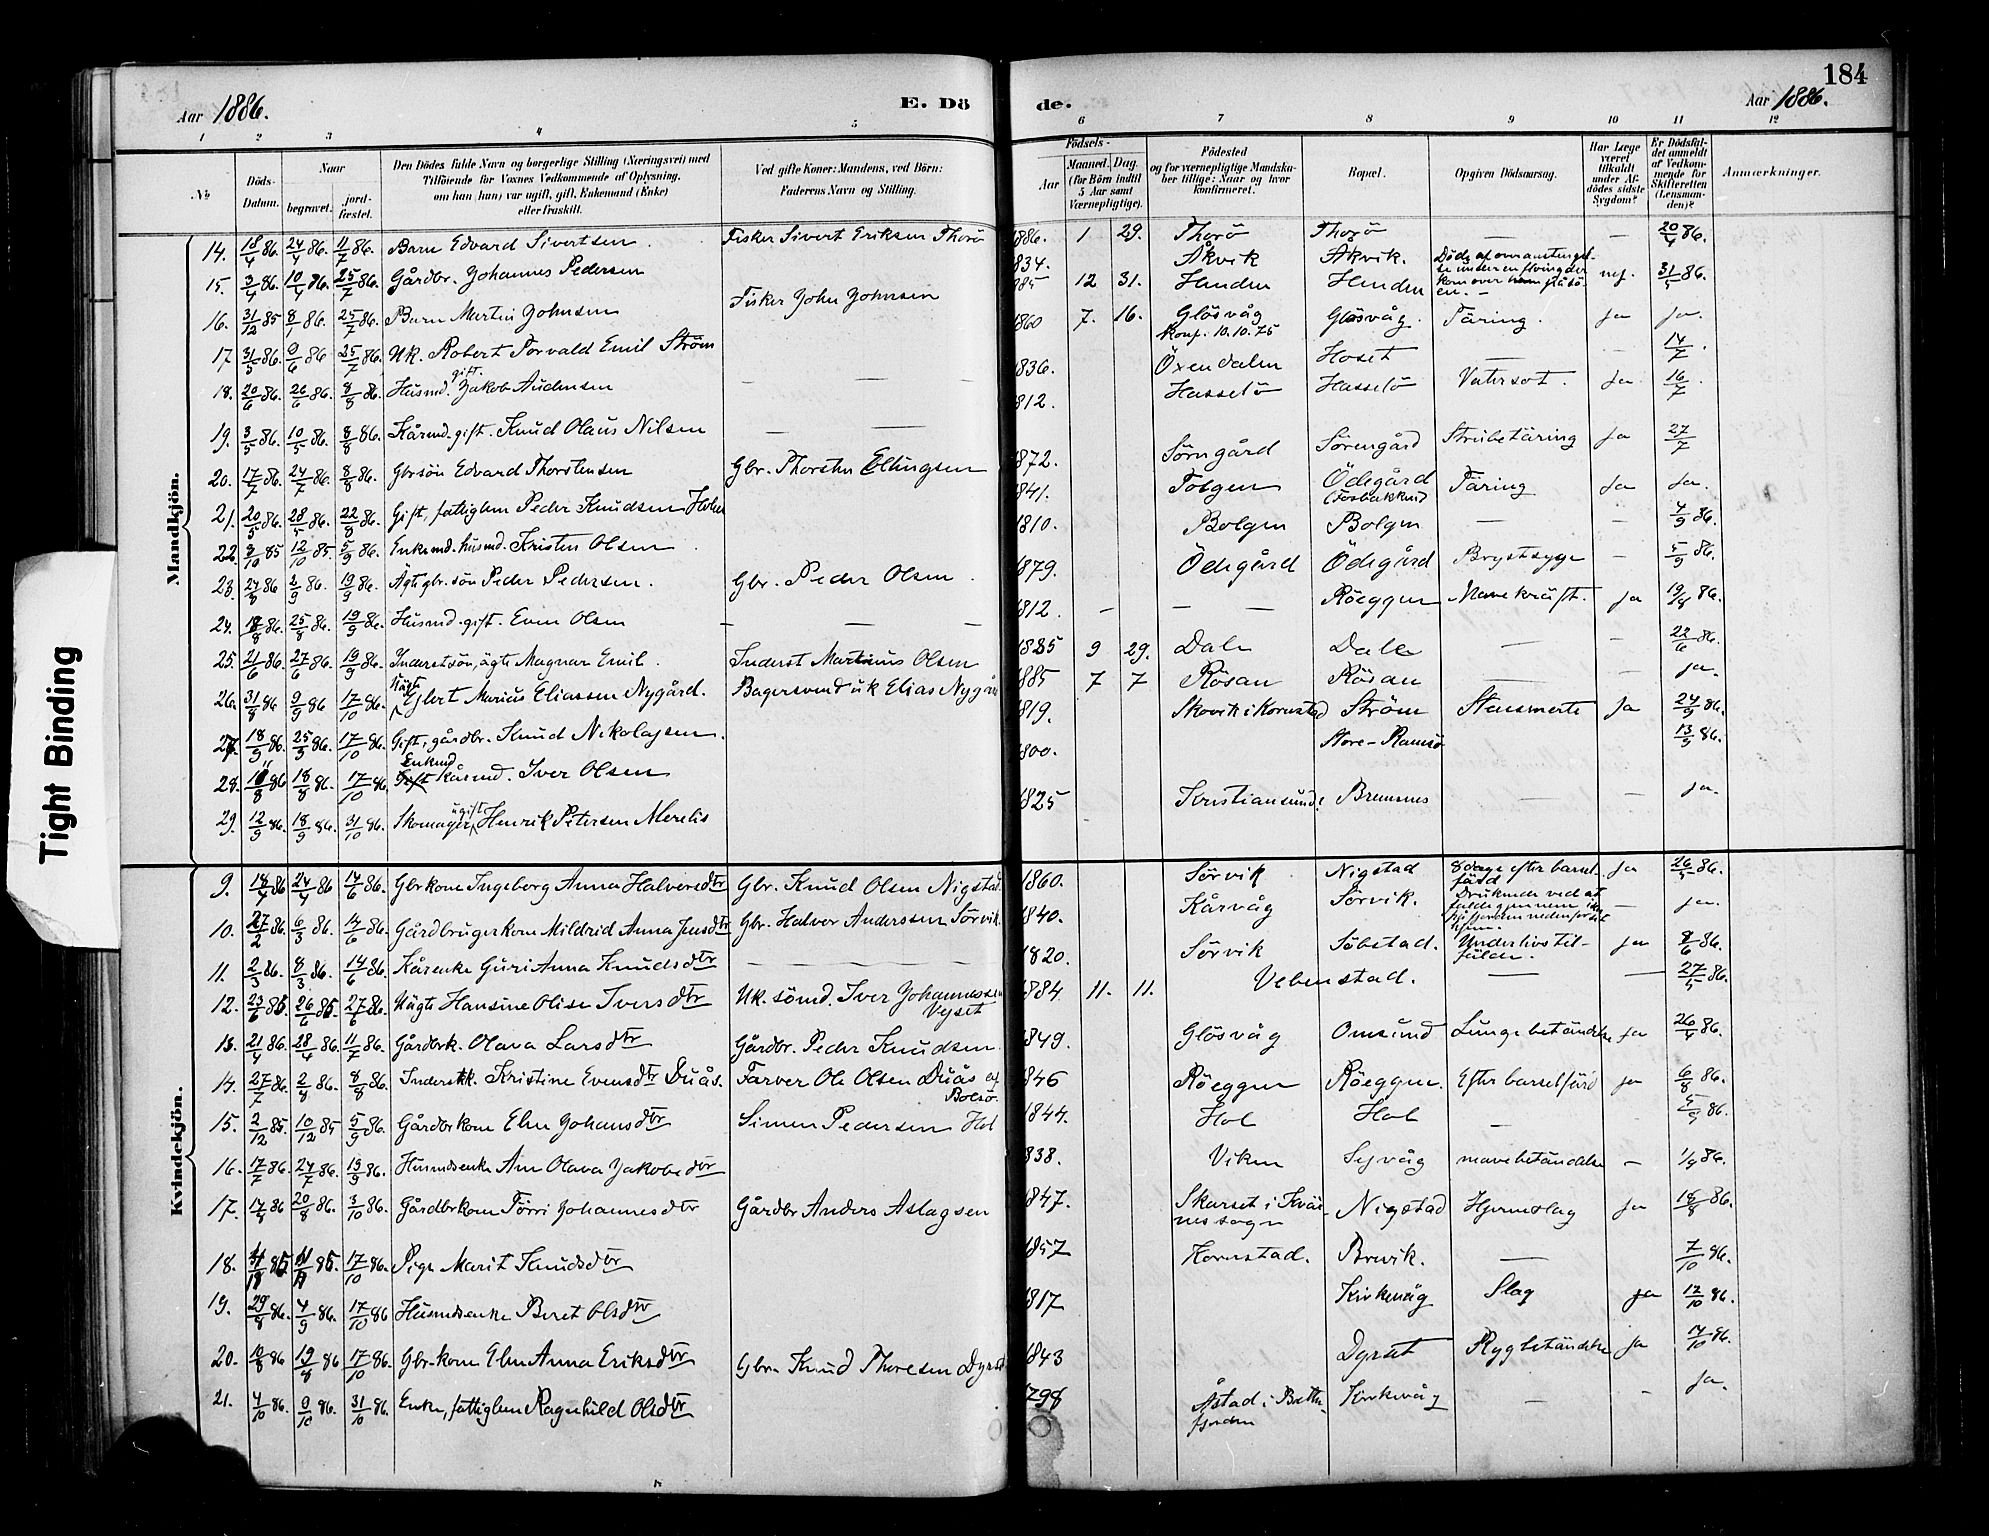 184
Aar 1886. E. Dö de. Aar 1886.
1 2 3 4 5 6 7 8 9 10 11 12
№
Döds-Datum.
Naar
begravet.
jord-fæstet.
Den Dödes fulde Navn og borgerlige Stilling (Næringsvei) med
Tilföiende for Voxnes Vedkommende af Oplysning,
om han (hun) var ugift, gift, Enkemand (Enke)
eller fraskilt.
Ved gifte Koner: Mandens, ved Börn:
Faderens Navn og Stilling.
Födsels-
Aar
Maaned. Dag.
(for Börn indtil
5 Aar samt
Værnepligtige).
Födested
og for værnepligtige Mandska-
ber tillige: Naar og hvor
konfirmeret.
Bopæl.
Opgiven Dödsaarsag.
Har Læge
været
tilkaldt
under Af-
dödes sidste
Sygdom?
Er Dödsfal-
det anmeldt
af Vedkom-
mende for
Skifteretten
(Lensman-
den)?
Anmærkninger.
Mandkjön.
14. 18/4 86. 24/4 86. 11/7 86. Barn Edvard Sivertsen Fisker Sivert Eriksen Thorö 1886. 1 29. Thorö Thorö — — 20/4 86.
15. 3/4 86. 10/4 86. 25/7 86. Gårdbr. Johannes Pedersen 834. Åkvik Åkvik.
16. 31/12 85 8/1 86. 25/7 86. Barn Martin Johnsen Fisker John Johnsen 885 12 31. Henden Henden nej. 31/5 86.
17 31/5 86. 9/6 86 25/7 86. Uk. Robert Torvald Emil Ström 1860 7. 16. Glösvåg Konf. 10.10.75 Glösvåg. Täring. ja ja.
18. 20/6 86. 26/6 86. 8/8 86. Husmd. gift. Jakob Audensen — — — 1836. Öxendalen Hoset — — 14/7.
19. 3/5 86. 10/5 86. 8/8 86. Kårmd. gift. Knud Olaus Nilsen — — 812. Hasselö Hasselö Vatersot. ja 16/7.
20. 17/7 86. 24/7 86. 8/8 86. Gbrsön Edvard Thorstensen Gbr. Thorsten Ellingsen 1872. Sörngård Sörengård Strübetäring ja 27/7
21. 20/5 86. 28/5 86. 22/8 86. Gift, fattiglem Peder Knudsen Holen 1841. Tolgen Ödegård Täring ja ja.
22. 3/10 85 12/10 85. 5/9 86. Enkemd. husmd. Kristen Olsen 1810. Bolgen Bolgen — — 4/9 86.
23. 27/8 86 2/9 86. 19/9 86. Ägte gbr. sön Peder Pedersen. Gbr. Peder Olsen. 1879. Ödegård Ödegård Brystsyge — 5/9 86.
24. 18/8 86. 25/8 86. 19/9 86. Husmd. gift. Even Olsen — — — 1812. — — — Röeggen Mavekräft. ja 19/8 86.
25. 21/6 86. 27/6 86. 19/9 86. Inderstsön, ägte Magnar Emil. Inderst Martinus Olsen 1885 9 29. Dale Dale — — 22/6 86.
26. 31/8 86 9/9 86 17/10 86. Uägte Eglert Marius Eliassen Nygård. Bagersvend uk Elias Nygård 1885 7 7 Rösan Rösan — — ja.
27. 18/9 86. 25/9 86. 17/10 86. Gift, gårdbr. Knud Nikolajsen. 1819. Skovik i Kornstad Ström Stensmerte ja 24/9 86.
28. 11/8 86 18/8 86. 17/10 86. Enkmd kårmd. Iver Olsen 1800. Store-Ramsö 13/9 86.
29. 12/9 86. 18/9 86. 31/10 86. Skomager, ugift Henrik Petersen Merelis 1825 Kristiansund. Bremsnes — — ja.
Kvindekjön.
9. 18/4 86 24/4 86 14/6 86. Gbrkone Ingeborg Anna Halversdtr Gbr. Knud Olsen Nigstad. 1860. Sörvik Nigstad 8 dage efter barselfärd ja 26/5 86.
10. 27/2 86. 6/3 86. 14/6 86. Gårdbrugerkone Mildrid Anna Jensdtr Gbr. Halver Anderssen Sörvik. 1840. Kårvåg Sörvik. — ja.
11. 2/3 86. 8/3 86. 14/6 86. Kårenke Guri Anna Knudsdtr — — — 1820. Sörvik Söbstad. Underlivstilfälde. ja 8/6 86.
12. 23/6 85 26/6 85. 27/6 86. Uägte Hansine Olise Iversdtr Uk. sömd. Iver Johannessen Vejset 1884 11. 11. Vebenstad. — — 27/5 86.
13. 21/4 86. 28/4 86. 11/7 86. Gårdbrk. Olava Larsdtr Gårdbr. Peder Knudsen 1849. Glösvåg Omsund Lungebetändelse ja 26/4 86.
14. 27/7 86. 2/8 86. 8/8 86. Inderstk. Kristine Evensdtr Duås. Farver Ole Olsen Duås af Bolsö. 1846 Röeggen Röeggen. Efter barselfärd ja 6/8 86.
15. 2/12 85. 10/12 85 5/9 86. Gårdbrkone Elen Johansdtr Simen Pedersen Hol 1844. Hol Hol — 5/9 86.
16. 17/7 86. 24/7 86. 19/9 86. Husmdsenke Ane Olava Jakobsdtr 838. Viken Sejvåg mavebetändelse — 1/9 86.
17. 14/8 86 20/8 86. 3/10 86. Gårdbrkone Törri Johannesdtr Gårdbr Anders Aslagsen 1847. Skarset i Kvärnessogn Nigstad Hjerneslag ja 18/8 86.
18. 86 86. 17/10 86. Pige Marit Knudsdtr 1857 Kornstad. Brevik. — 7/10 86.
19. 29/8 86. 4/9 86. 17/10 86 Husmdsenke Beret Olsdtr 1817 Kirkevåg Slag ja 12/10 86.
20. 10/8 86 19/8 86 17/10 86. Gbr-kone Elen Anna Eriksdtr Gbr. Knud Thoresen Dyrset 1843 Dyrset Rygbetändelse ja 14/10 86.
21. 4/10 86. 9/10 86. 31/10 86. Enke, fattiglem Ragnhild Olsdtr 1798 Åstad i Batnfjorden Kirkevåg — — ja.
Tight Binding